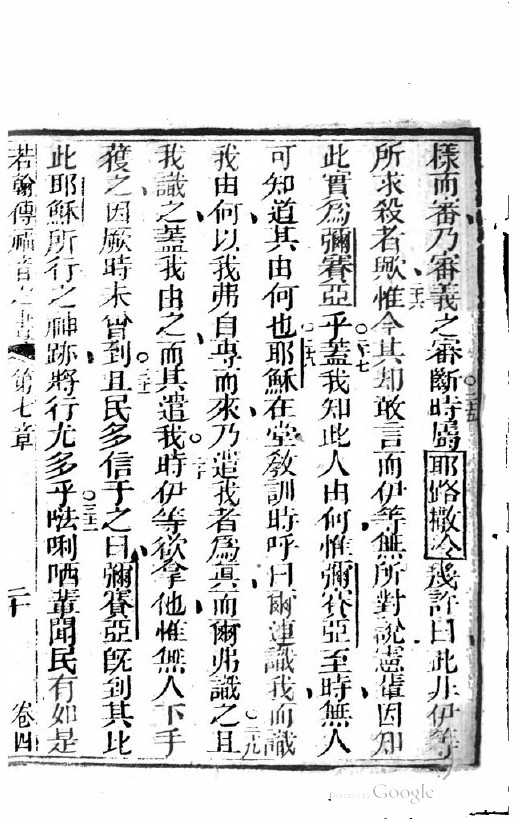 樣而審乃審義之審斷時屬耶路撒冷幾許曰此非伊等
所求殺者歟惟今其却敢言而伊等無所對說憲輩因知
此實為彌賽亞乎蓋我知此人由何惟彌賽亞至時無人
可知道其由何也耶穌在堂教訓時呼曰爾連識我而識
我由何以我弗自專而來乃遣我者為真而爾弗識之且
我識之蓋我由之而其遣我時伊等欲拿他惟無人下手
獲之因厥時未曾到且民多信于之曰彌賽亞既到其比
此耶穌所行之神跡將行尤多乎𠵽唎哂輩聞民有如是
若翰傳福音之書 第七章 二十 卷四
二五
二六
二七
二八
二九
三十
三一
三二
Digitized by Google